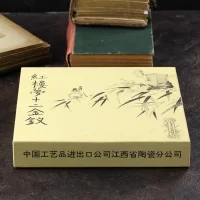 红楼梦十二金钗
中国工艺品进出口公司江西省陶瓷分公司